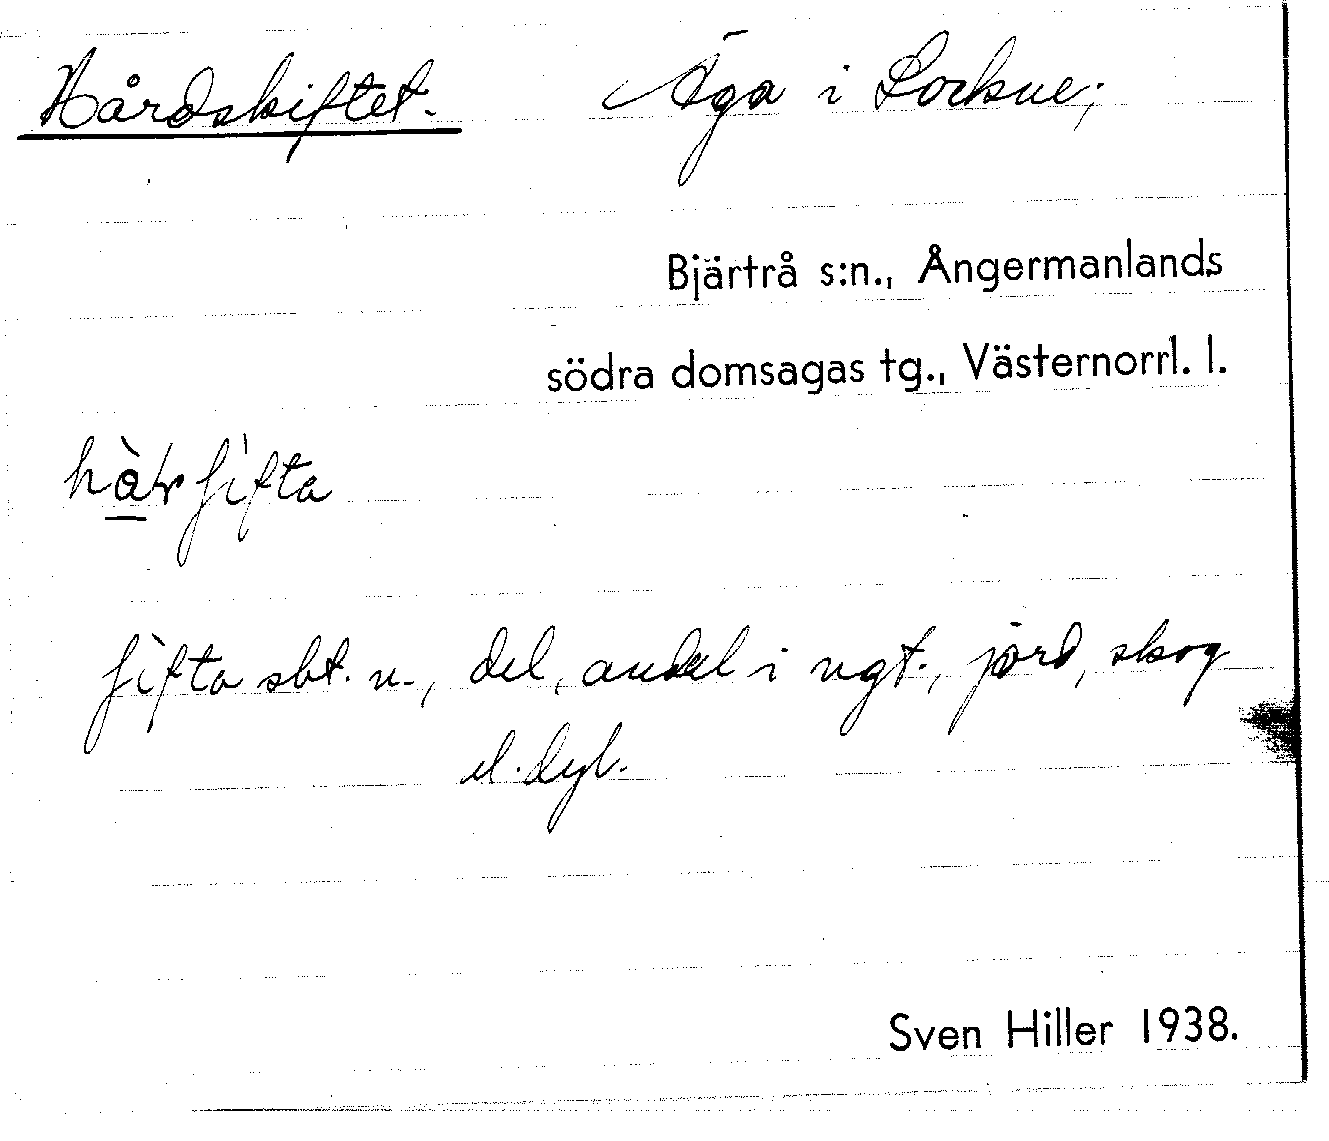 Hårdskiftet. Äga i Lockne;
Bjärtrå s:n., Ångermanlands
södra domsagas tg., Västernorrl. l.
ʃìfta sbt. n., del, andel i ngt., jord, skog
el. dyl.
Sven Hiller 1938.